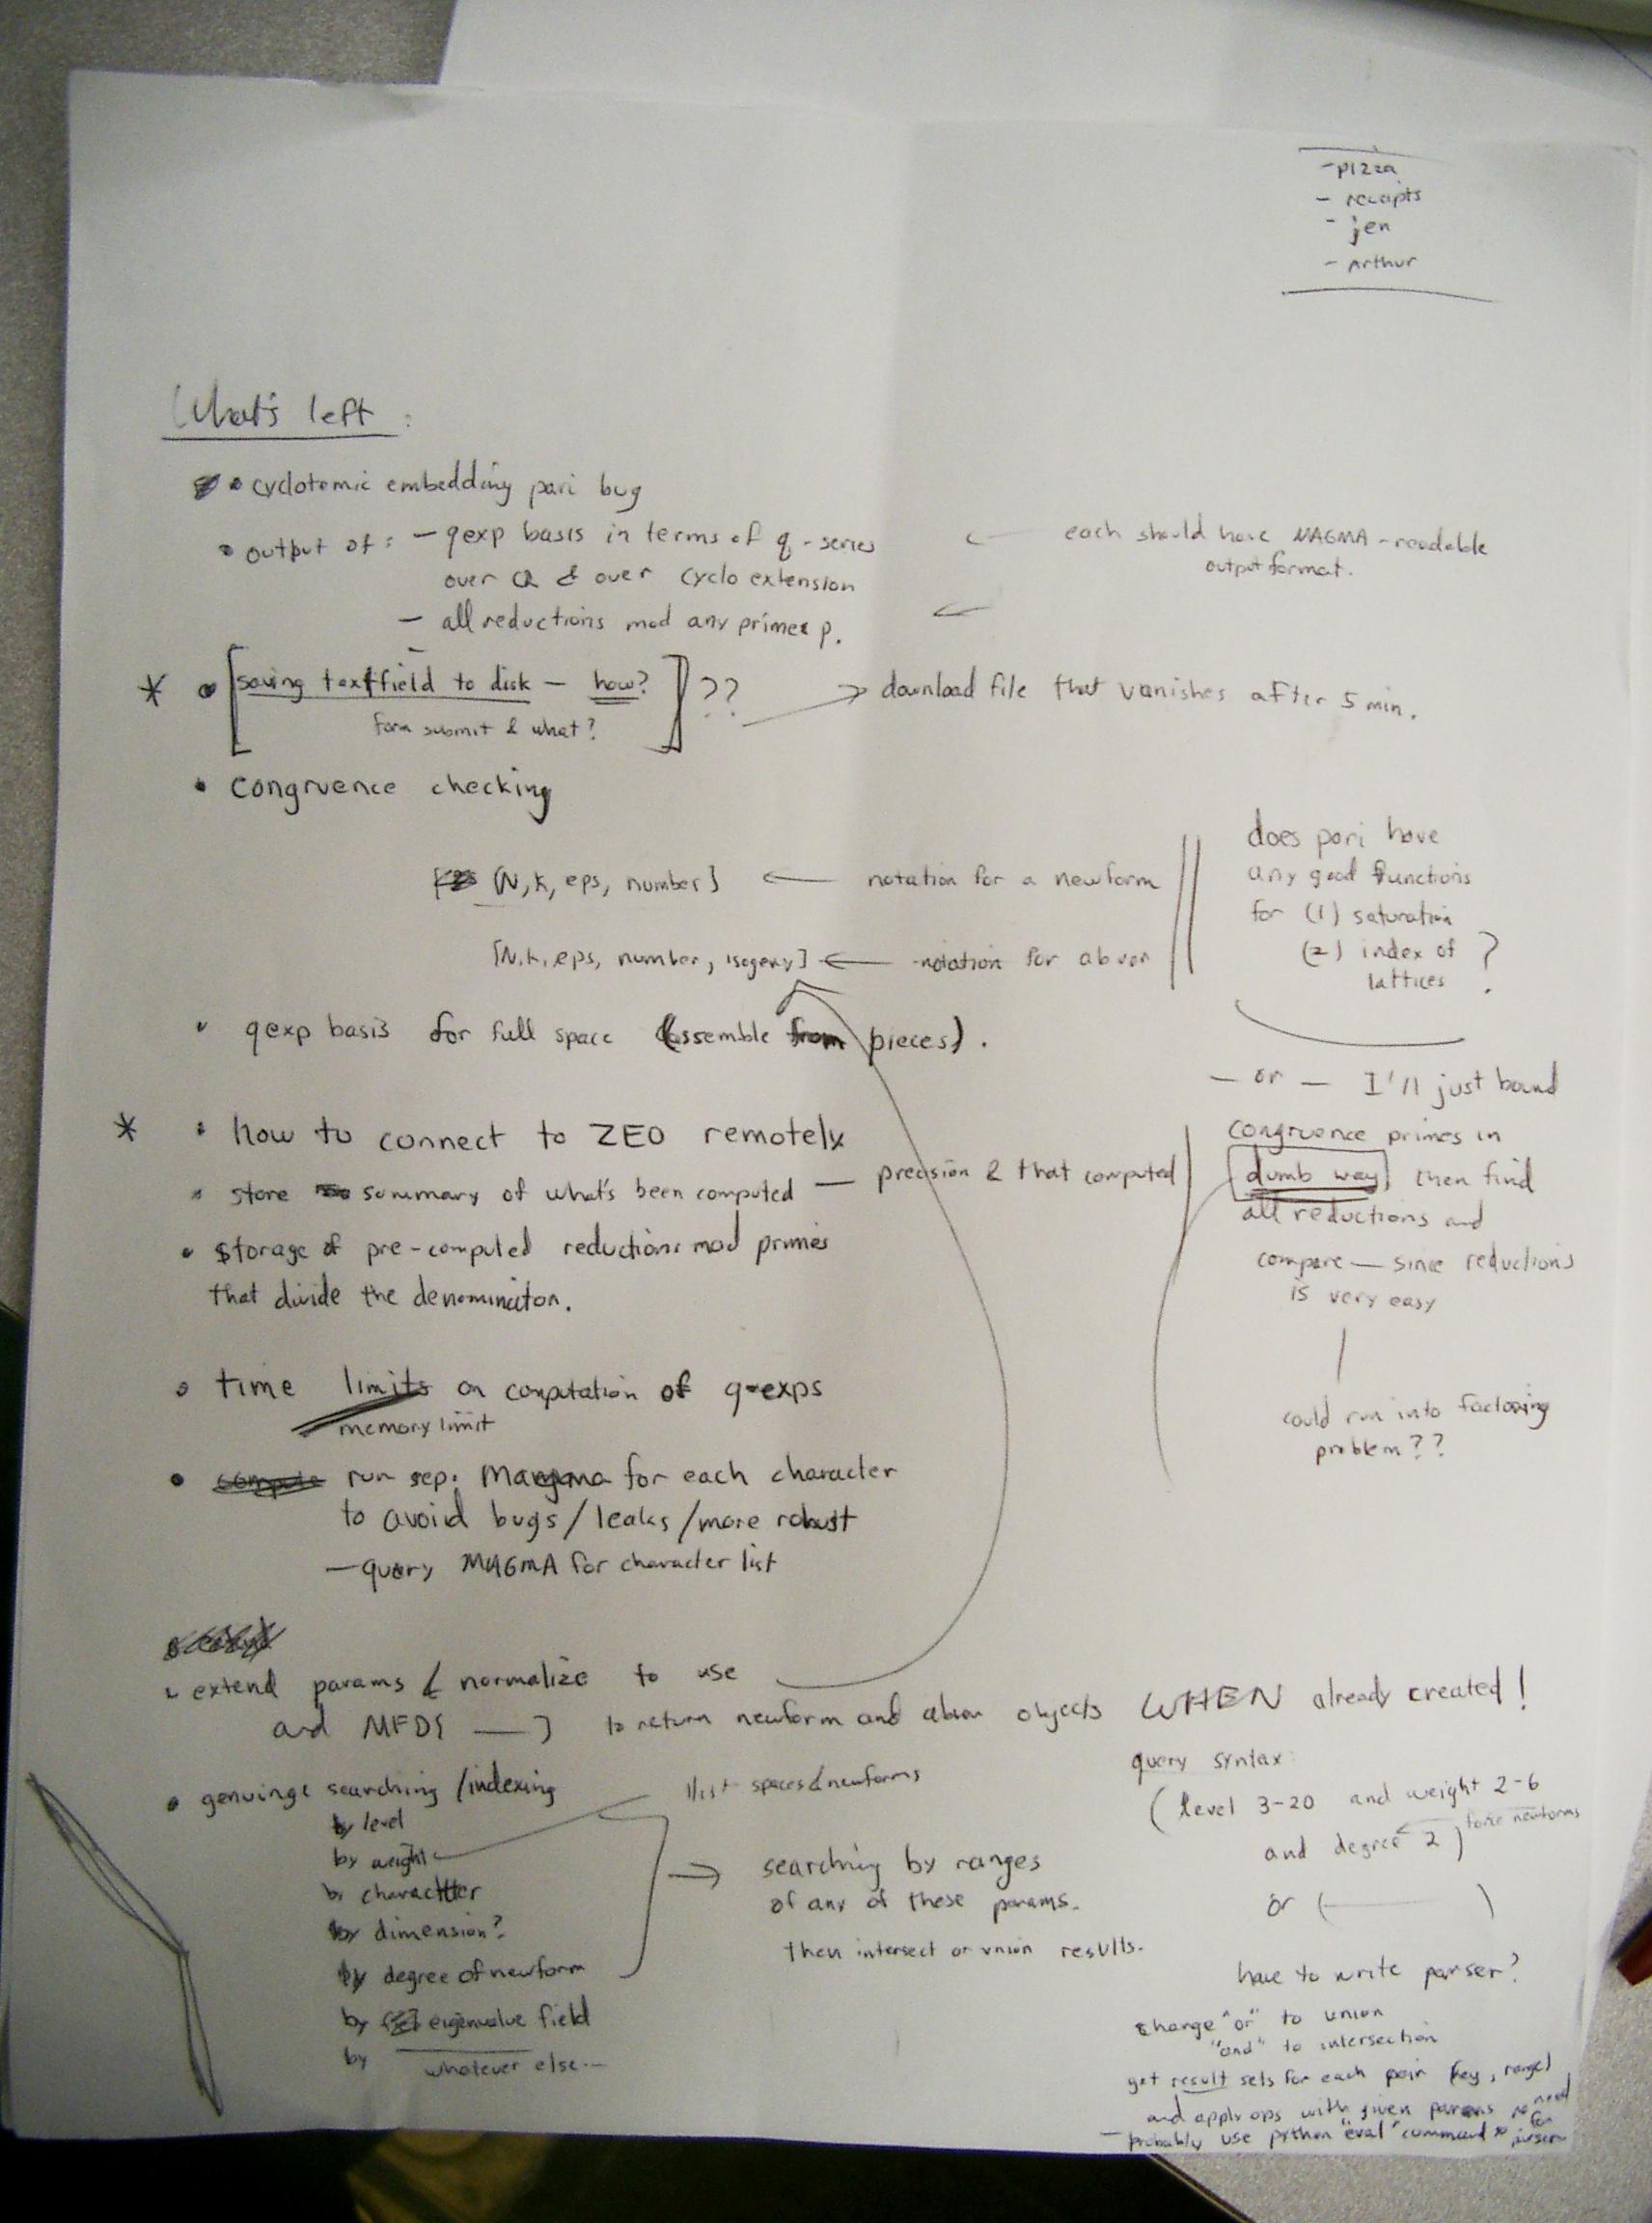 - pizza
- receipts
- jen
- Arthur
What's left :
• cyclotomic embedding pari bug
• output of : — qexp basis in terms of q-series
over Q & over cyclo extension
— all reductions mod any prime p.
← each should have MAGMA-readable
output format.
←
* • [saving textfield to disk — how?] ??
form submit & what?
→ download file that vanishes after 5 min.
• congruence checking
[N, k, eps, number] ← notation for a newform
[N, k, eps, number, isogeny] ← notation for abvar
does pari have
any good functions
for (1) saturation
(2) index of
lattices ?
• qexp basis for full space (assemble from pieces).
— or — I'll just bound
congruence primes in
dumb way, then find
all reductions and
compare — since reductions
is very easy
could run into factoring
problem??
* • how to connect to ZEO remotely
• store summary of what's been computed — precision & that computed
• storage of pre-computed reductions mod primes
that divide the denominator.
• time limits on computation of q-exps
memory limit
• run sep. Magma for each character
to avoid bugs/leaks/more robust
— query MAGMA for character list
• extend params & normalize to use
and MFDS —] to return newform and abvar objects WHEN already created!
• genuinge searching/indexing
by level
by weight
by character
by dimension?
by degree of newform
by eigenvalue field
by ____ whatever else...
list spaces & newforms
→ searching by ranges
of any of these params.
then intersect or union results.
query syntax:
(level 3-20 and weight 2-6
and degree 2) ← force newforms
or (——)
have to write parser?
change "or" to union
"and" to intersection
get result sets for each pair (key, range)
and apply ops with given params
— probably use python "eval" command so no need for parser